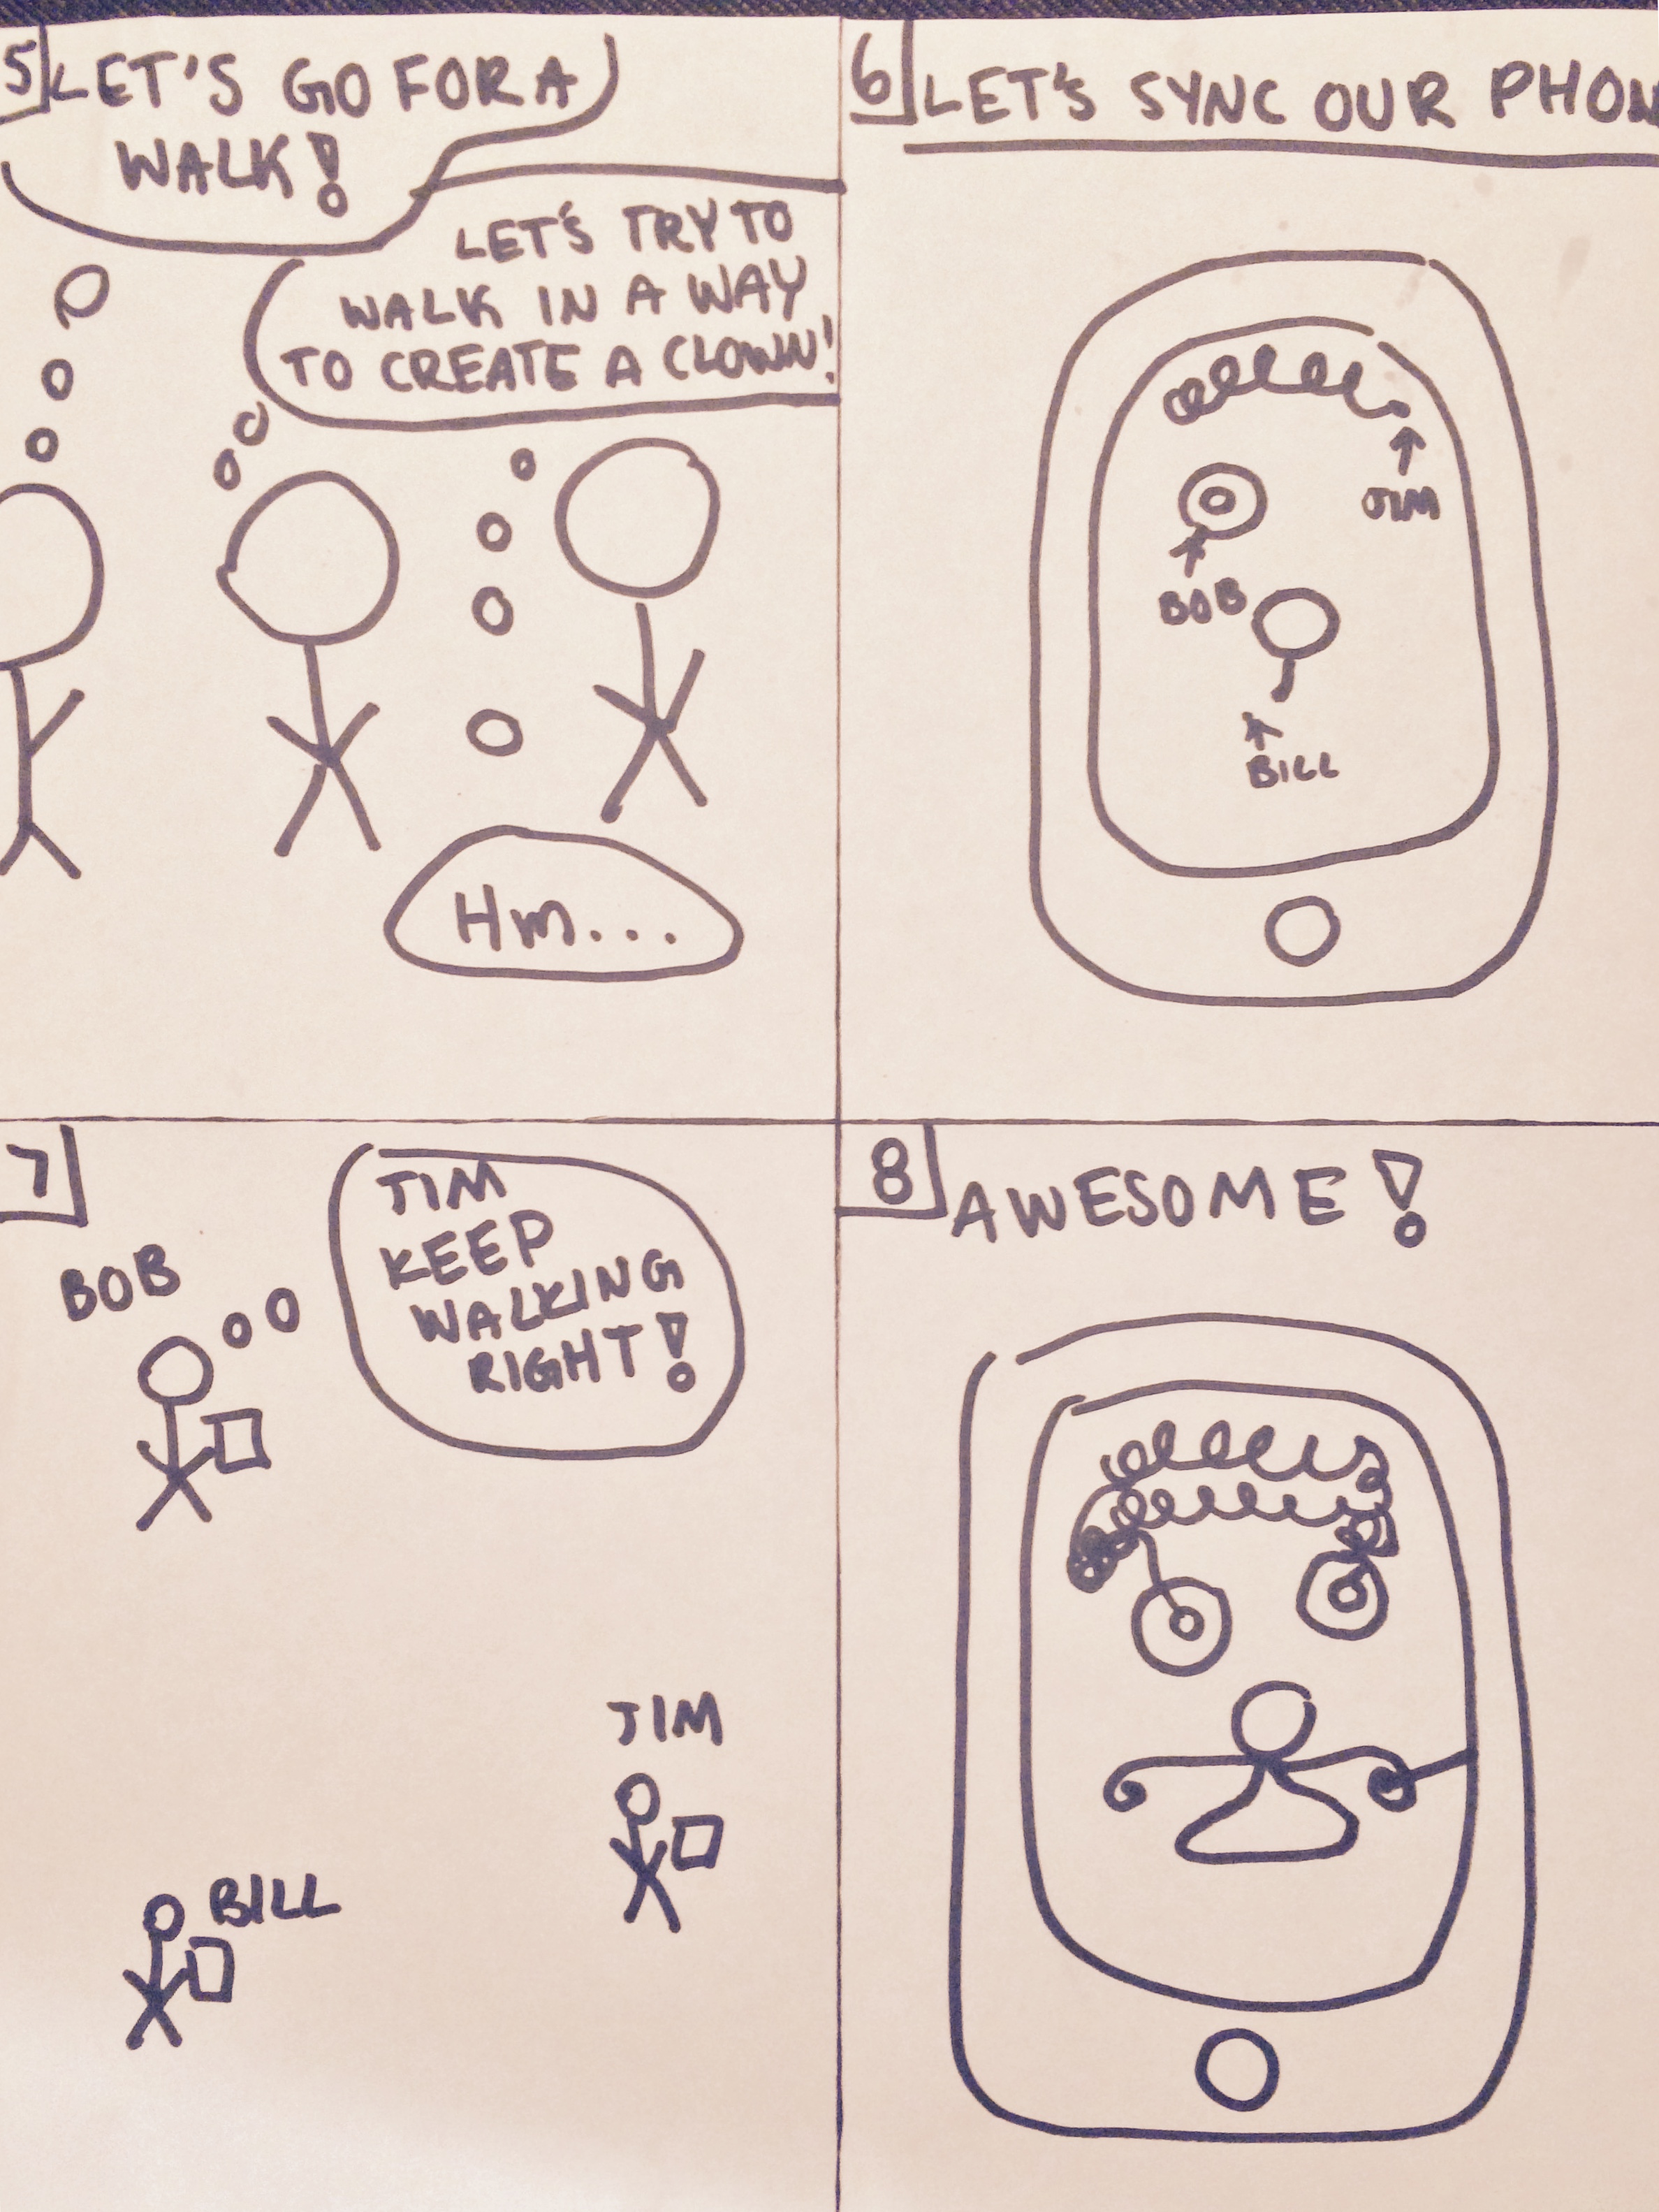 5
LET'S GO FOR A
WALK!
LET'S TRY TO
WALK IN A WAY
TO CREATE A CLOWN!
Hm...
6
LET'S SYNC OUR PHON
JIM
BOB
BILL
7
BOB
JIM
KEEP
WALKING
RIGHT!
JIM
BILL
8
AWESOME!